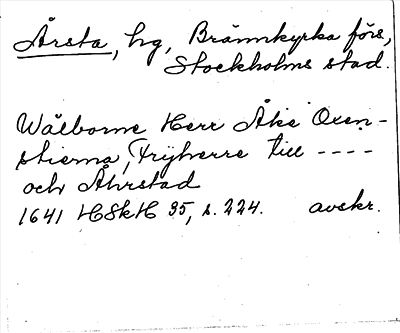 Årsta, hg, Brännkyrka förs,
Stockholms stad.
Wälborne Herr Åke Oxen-
stierna, Frijherre till ----
och Åhrstad
1641 HSkH 35, s. 224. avskr.